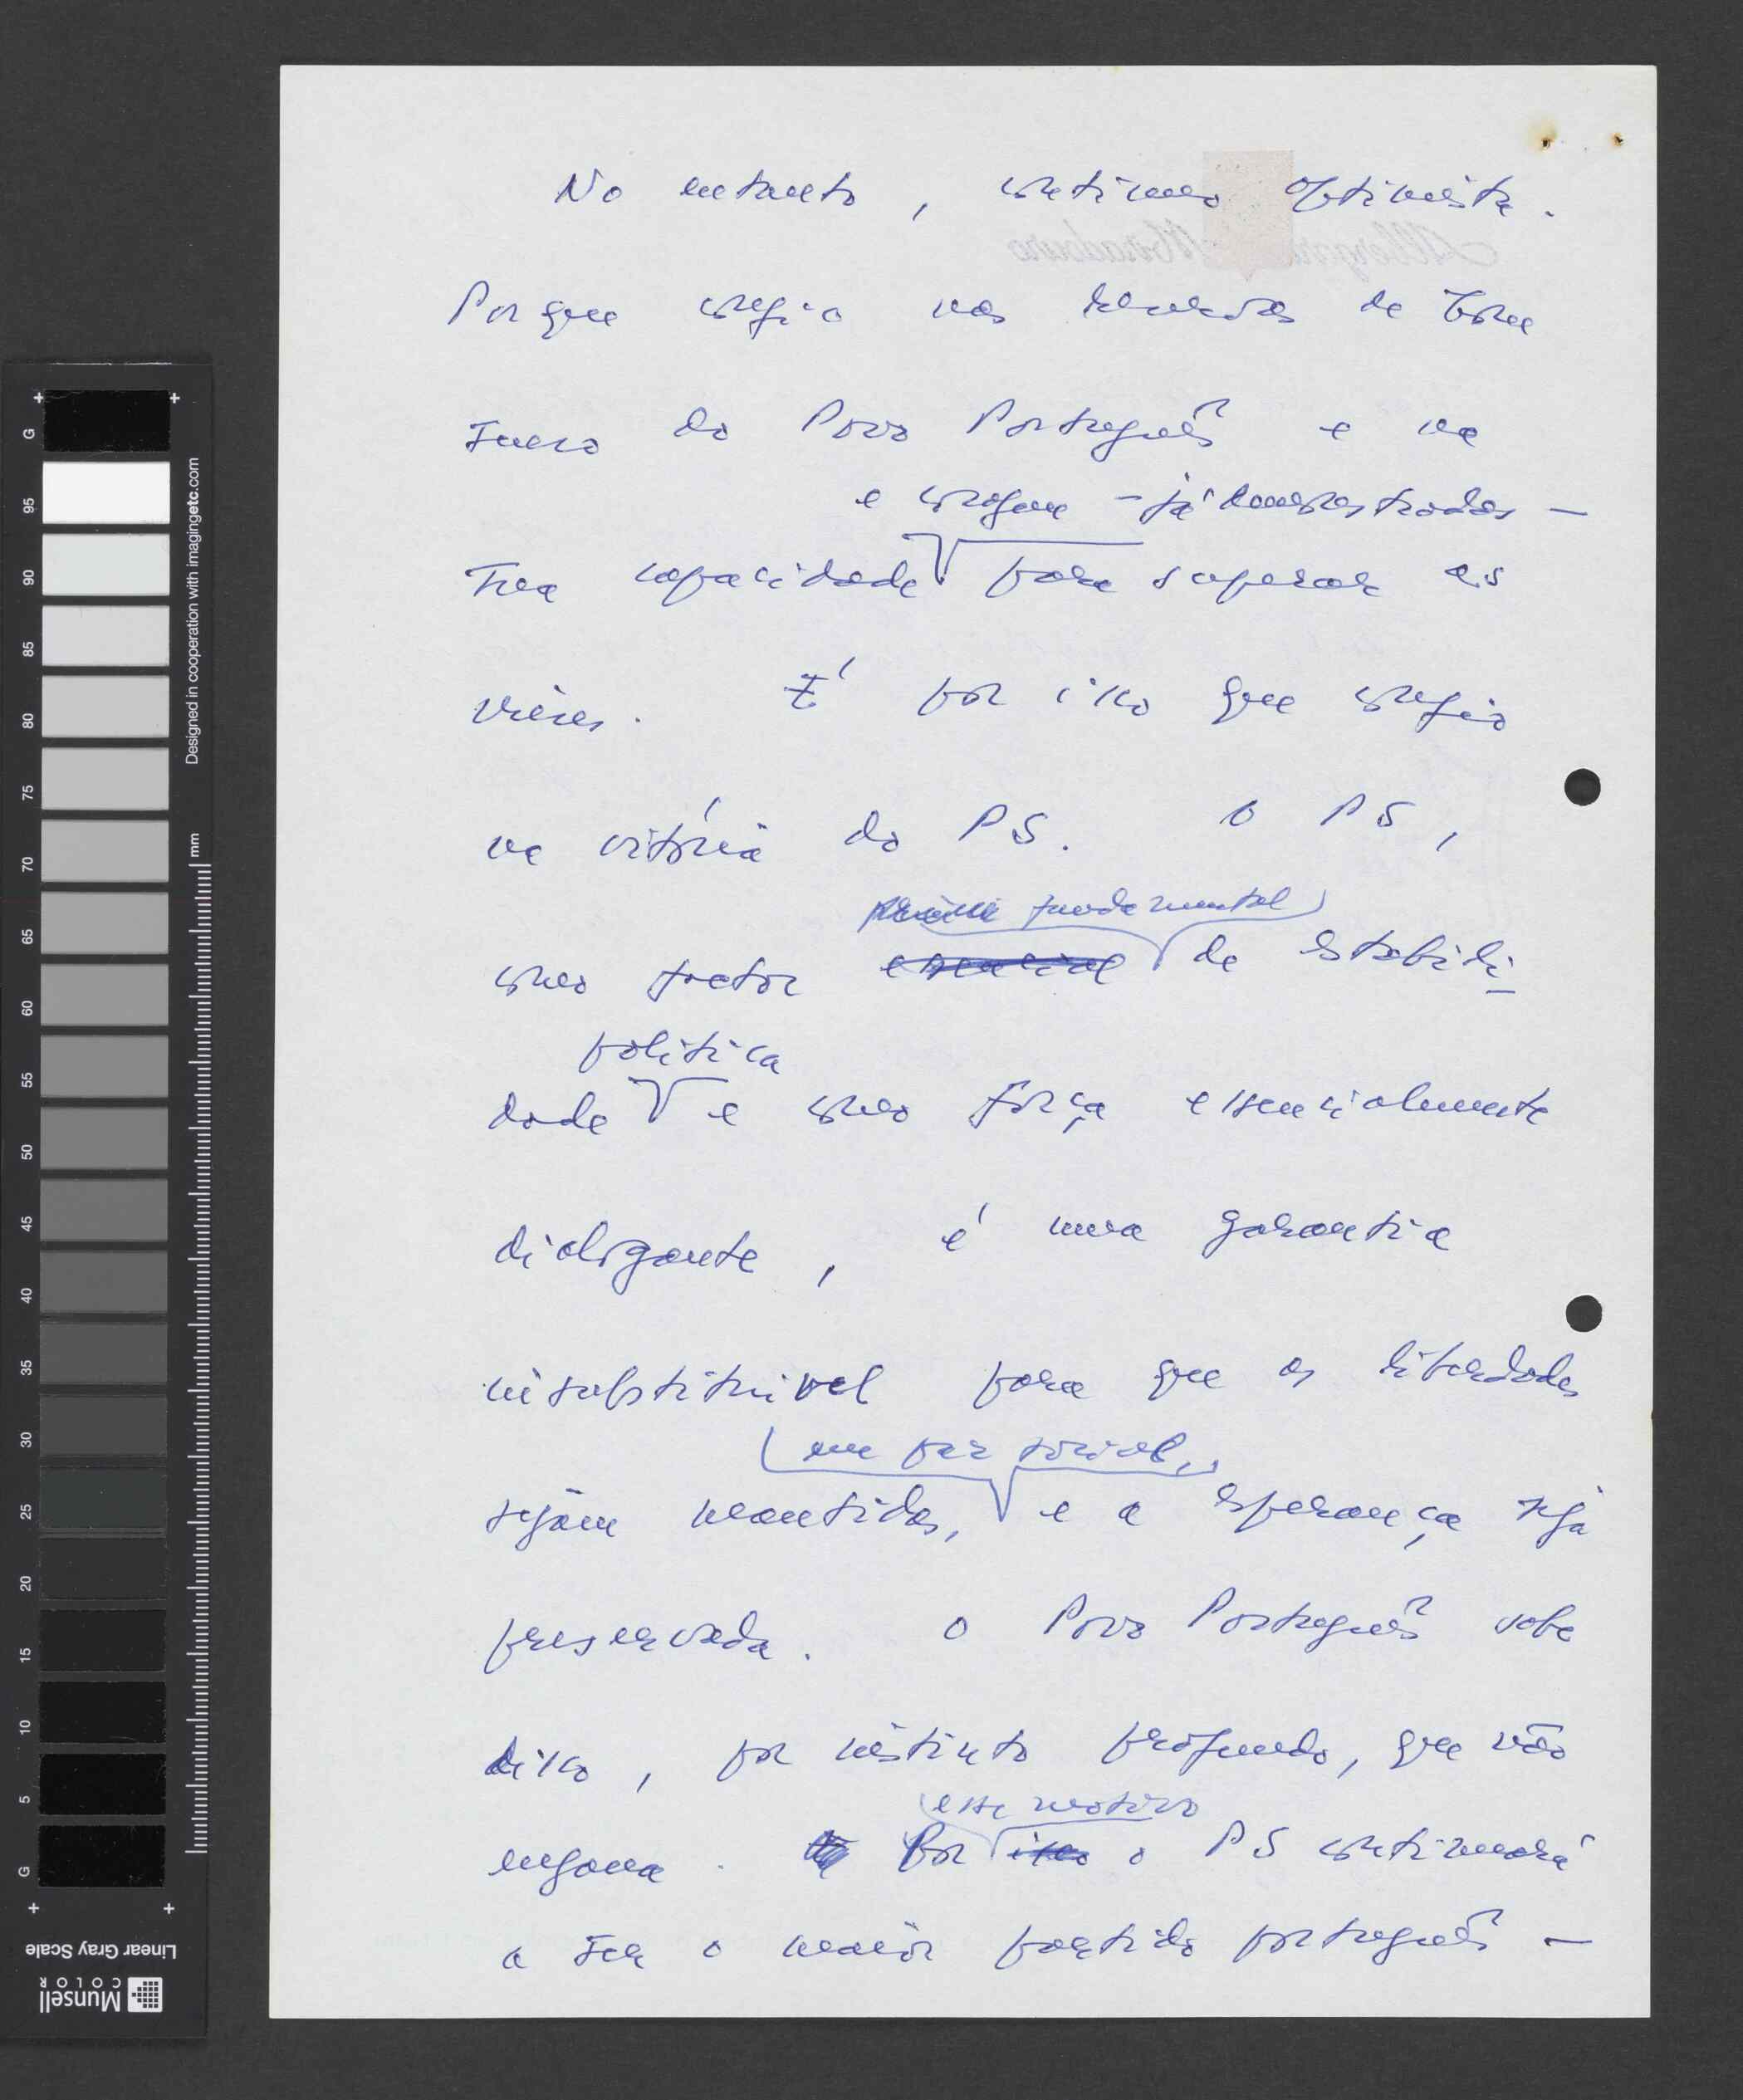 No entanto, continuo optimista.
Porque confio nas reservas de bom
senso do Povo Português e na
e coragem - já demonstradas -
sua capacidade para superar as
crises. É por isso que confio
na vitória do PS. O PS,
fundamental
como factor essencial de estabili
política
dade e como força essencialmente
dialogante, é uma garantia
insubstituível para que as liberdades
em paz social,
sejam mantidas, e a esperança seja
preservada. O Povo Português sabe
disso, por instinto profundo, que não
esse motivo
engana. Por isso o PS continuará
a ser o maior partido português -
Albergaria Miradouro
Designed in cooperation with imagingetc.com
mm
G 95 90 85 80 75 70 65 60 55 50 45 40 35 30 25 20 15 10 5 G
Linear Gray Scale
Munsell
COLOR